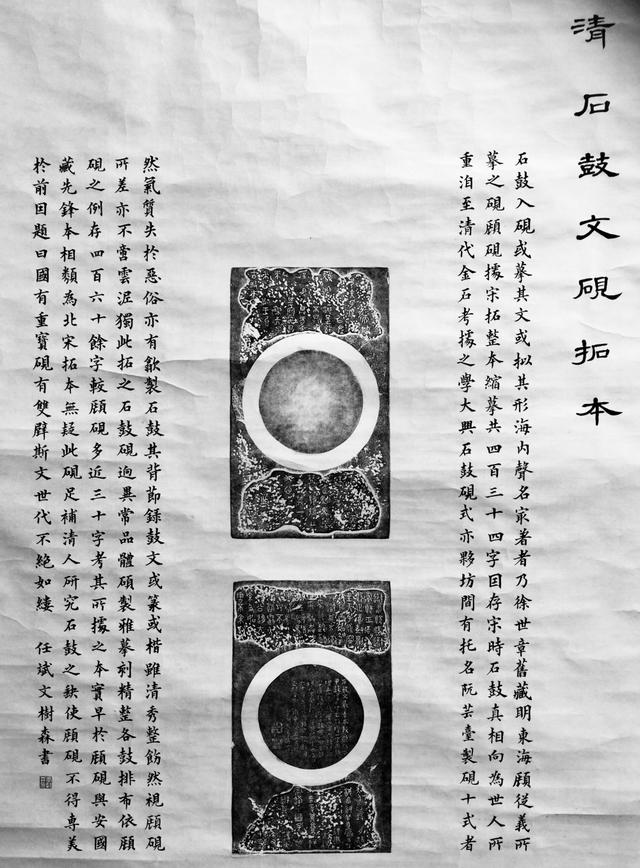 清石鼓文硯拓本
石鼓入硯或摹其文或拟其形海内聲名最著者乃徐世章舊藏明東海顧從義所
摹之硯顧硯據宋拓整本縮摹共四百三十四字因存宋時石鼓真相向為世人所
重洎至清代金石考據之學大興石鼓硯式亦夥坊間有托名阮芸臺製硯十式者
然氣質失於惡俗亦有歙製石鼓其背節錄鼓文或篆或楷雖清秀整飭然視顧硯
所差亦不啻雲泥獨此拓之石鼓硯迥異常品體碩製雅摹刻精整各鼓排布依顧
硯之例存四百六十餘字較顧硯多近三十字考其所據之本實早於顧硯與安國
藏先鋒本相類為北宋拓本無疑此硯足補清人研究石鼓之缺使顧硯不得專美
於前因題曰國有重寶硯有雙辟斯文世代不絕如縷 任斌文樹森書